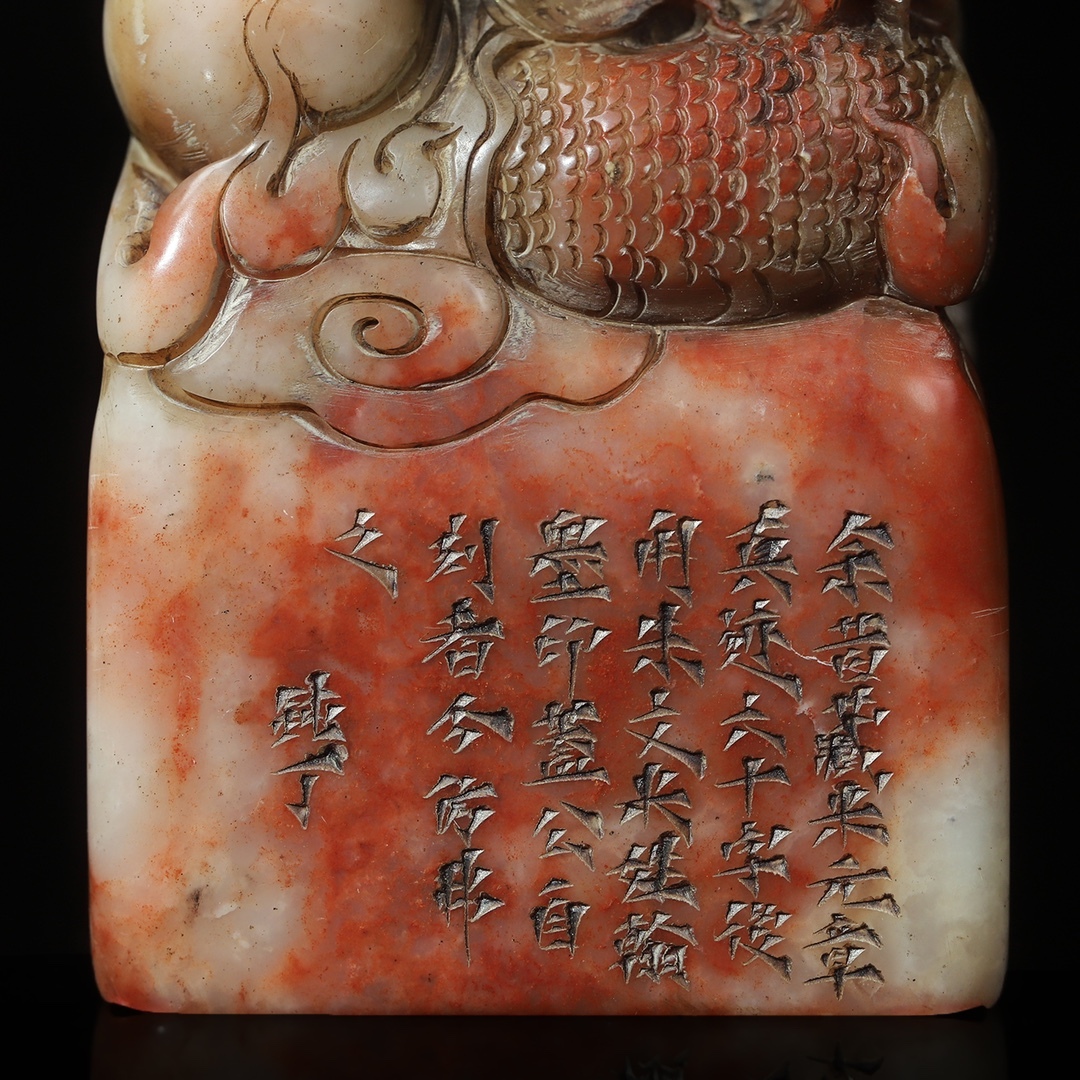 余昔藏米元章
真迹六十字後
用朱文米姓翰
墨印蓋公自
刻者今仿
之
鈍丁